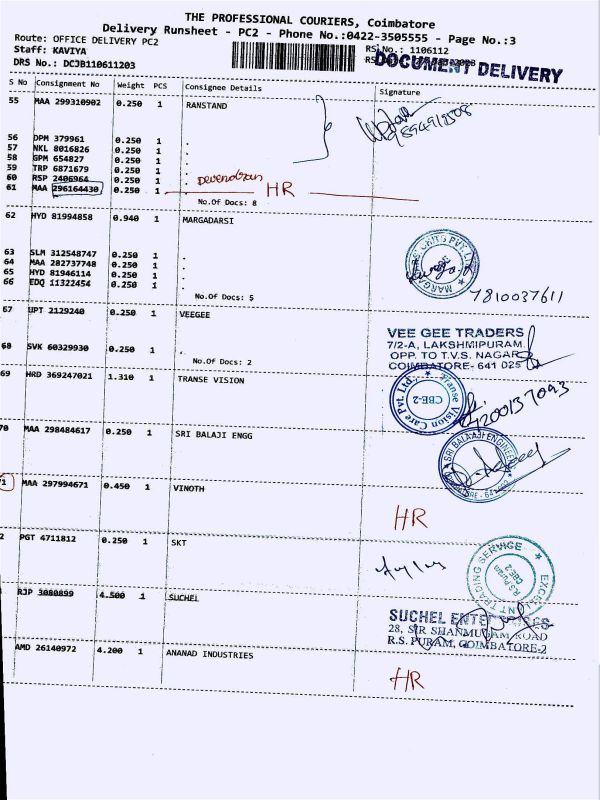 THE PROFESSIONAL COURIERS, Coimbatore
Delivery Runsheet - PC2 - Phone No.:0422-3505555 - Page No.:3
Route: OFFICE DELIVERY PC2
Staff: KAVIYA
DRS No.: DCJB110611203
RSI No.: 1106112
DOCUMENT DELIVERY
S No Consignment No Weight PCS Consignee Details Signature
55 MAA 299310902 0.250 1 RANSTAND
56 DPM 379961 0.250 1 .
57 NKL 8016826 0.250 1 .
58 GPM 654827 0.250 1 .
59 TRP 6871679 0.250 1 .
60 RSP 2406964 0.250 1 .
61 MAA 296164430 0.250 1 Devendran HR
No.Of Docs: 8
62 HYD 81994858 0.940 1 MARGADARSI
63 SLM 312548747 0.250 1 .
64 MAA 282737748 0.250 1 .
65 HYD 81946114 0.250 1 .
66 EDQ 11322454 0.250 1 .
No.Of Docs: 5
7810037611
67 UPT 2129240 0.250 1 VEEGEE
VEE GEE TRADERS
7/2-A, LAKSHMIPURAM
OPP. TO T.V.S. NAGAR
COIMBATORE- 641 025
68 SVK 60329930 0.250 1 .
No.Of Docs: 2
69 HRD 369247021 1.310 1 TRANSE VISION
Transe Vision Care Pvt. Ltd.,
CBE-2
70 MAA 298484617 0.250 1 SRI BALAJI ENGG
71 MAA 297994671 0.450 1 VINOTH
HR
2 PGT 4711812 0.250 1 SKT
R.S Puram
CBE-2
RJP 3080899 4.500 1 SUCHEL
SUCHEL ENTERPRISES
28, SIR SHANMUGAM ROAD
R.S. PURAM, COIMBATORE-2
AMD 26140972 4.200 1 ANANAD INDUSTRIES
HR